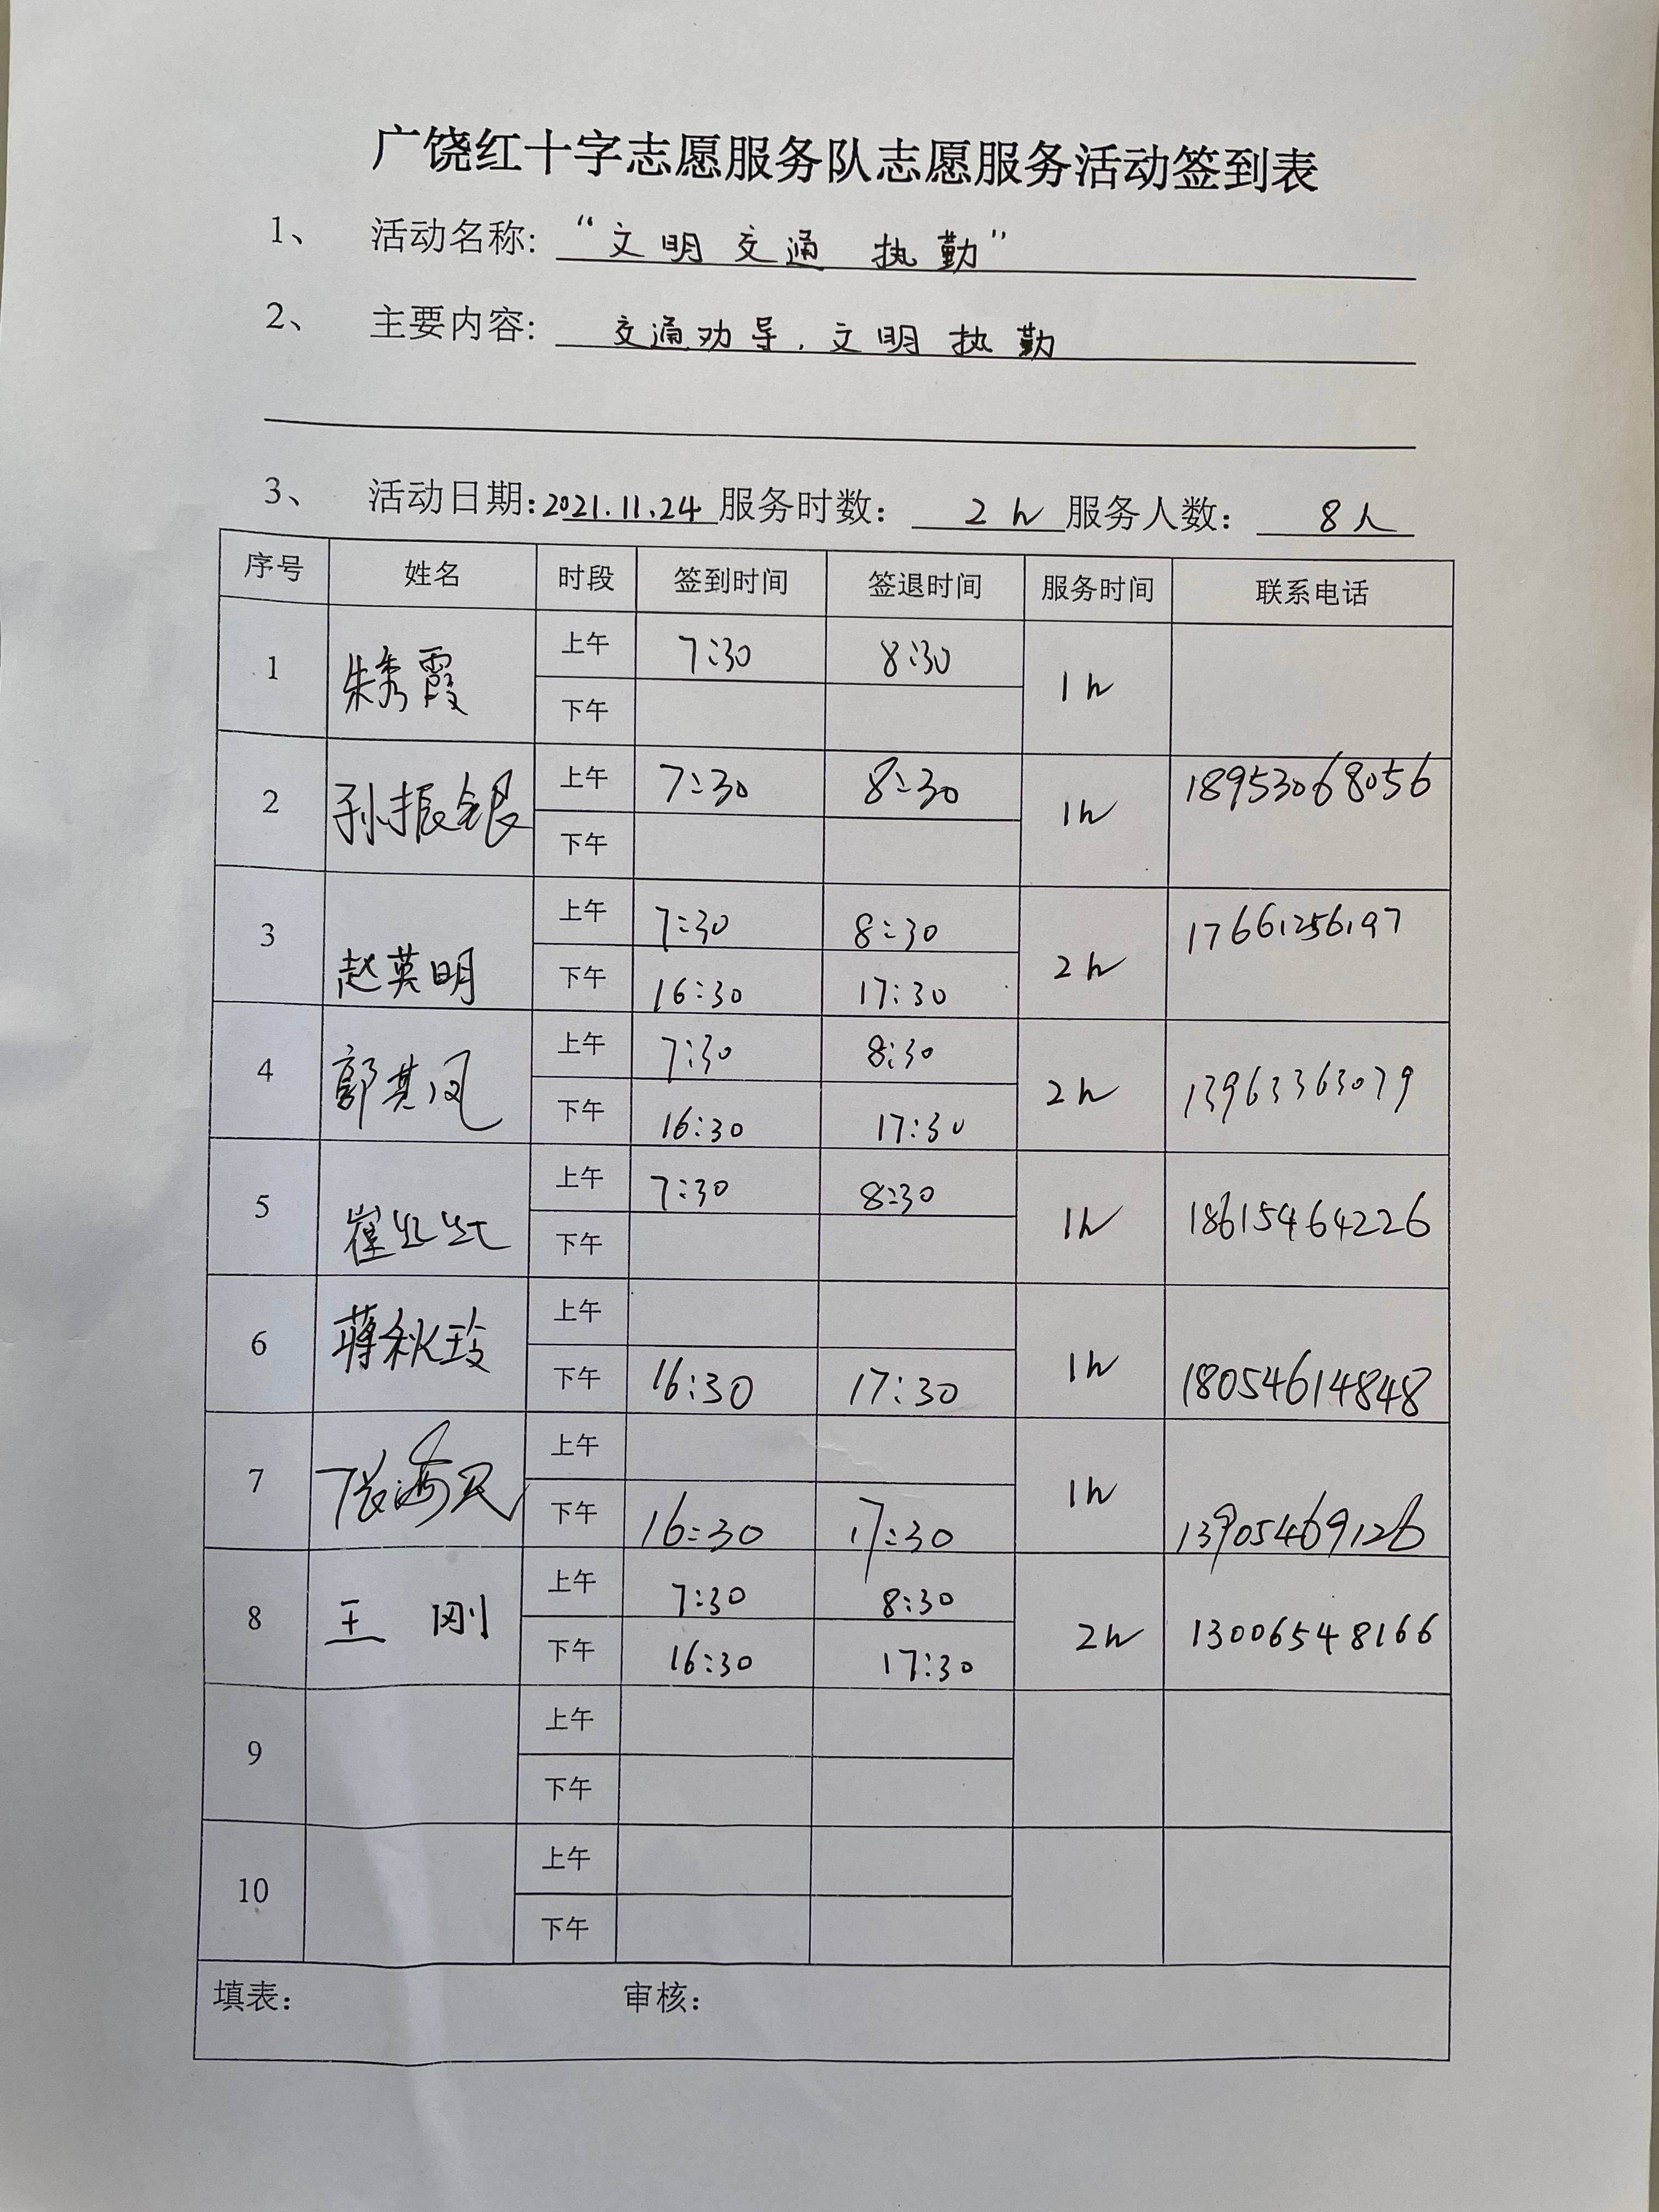 广饶红十字志愿服务队志愿服务活动签到表
1、 活动名称: “文明交通 执勤”
2、 主要内容: 交通劝导,文明执勤
3、 活动日期:2021.11.24 服务时数: 2h 服务人数: 8人
序号 姓名 时段 签到时间 签退时间 服务时间 联系电话
1 朱秀霞 上午 7:30 8:30 1h
下午
2 孙振银 上午 7:30 8:30 1h 18953068056
下午
3 赵英明 上午 7:30 8:30 2h 17661256197
下午 16:30 17:30
4 郭其凤 上午 7:30 8:30 2h 13963363079
下午 16:30 17:30
5 崔 上午 7:30 8:30 1h 18615464226
下午
6 蒋秋玲 上午 1h 18054614848
下午 16:30 17:30
7 张海 上午 1h 13905469126
下午 16:30 17:30
8 王刚 上午 7:30 8:30 2h 13006548166
下午 16:30 17:30
9 上午
下午
10 上午
下午
填表: 审核: